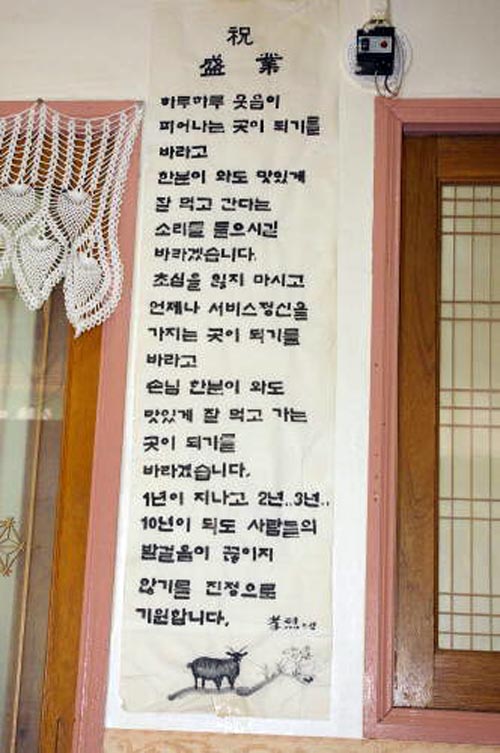 祝
盛 業
하루하루 웃음이
피어나는 곳이 되기를
바라고
한분이 와도 맛있게
잘 먹고 간다는
소리를 들으시길
바라겠습니다.
초심을 잃지 마시고
언제나 서비스정신을
가지는 곳이 되기를
바라고
손님 한분이 와도
맛있게 잘 먹고 가는
곳이 되기를
바라겠습니다.
1년이 지나고 2년..3년..
10년이 되도 사람들의
발걸음이 끊이지
않기를 진정으로
기원합니다.